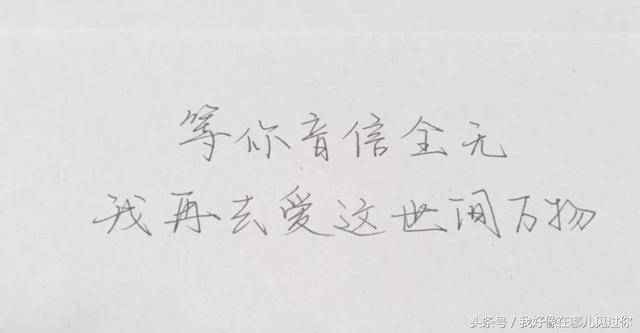 等你音信全无
我再去爱这世间万物
头条号/我好像在哪儿见过你